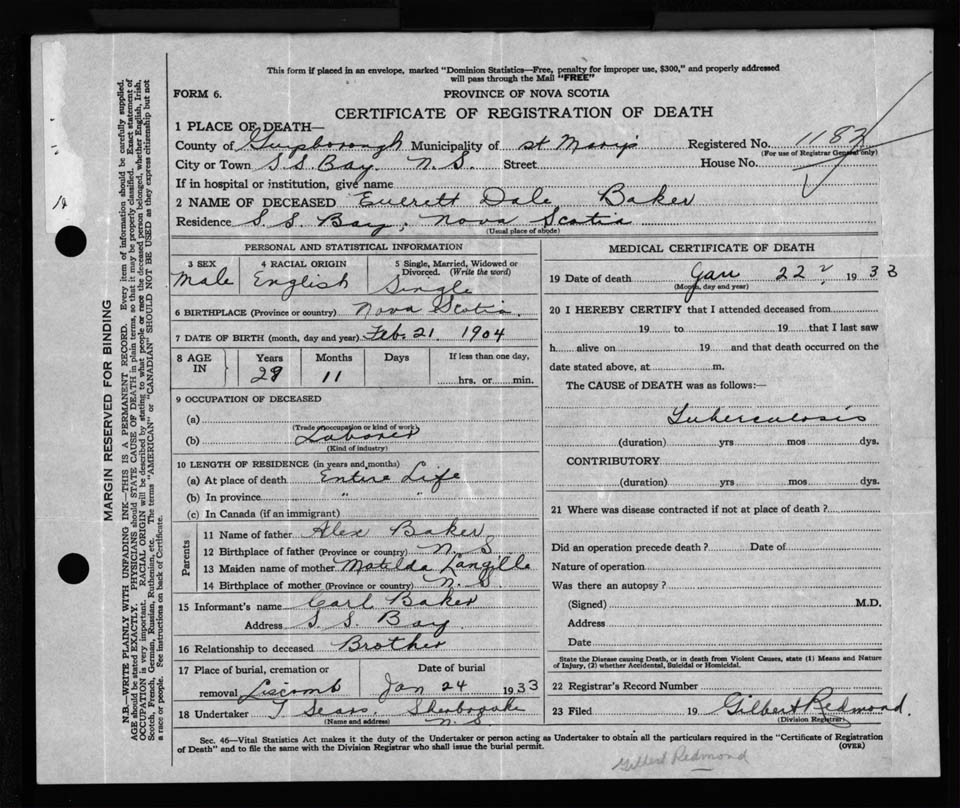 This form if placed in an envelope, marked "Dominion Statistics—Free, penalty for improper use, $300," and properly addressed
will pass through the Mail "FREE"
FORM 6.
PROVINCE OF NOVA SCOTIA
CERTIFICATE OF REGISTRATION OF DEATH
1 PLACE OF DEATH—
County of Guysborough Municipality of St Mary's Registered No. 1182
(For use of Registrar General only)
City or Town S.S. Bay. N.S. Street House No.
If in hospital or institution, give name
2 NAME OF DECEASED Everett Dale Baker
Residence S.S. Bay, Nova Scotia
(Usual place of abode)
PERSONAL AND STATISTICAL INFORMATION
3 SEX 4 RACIAL ORIGIN 5 Single, Married, Widowed or
Divorced. (Write the word)
Male English Single
6 BIRTHPLACE (Province or country) Nova Scotia.
7 DATE OF BIRTH (month, day and year) Feb. 21. 1904
8 AGE IN Years Months Days If less than one day,
29 11 hrs. or min.
9 OCCUPATION OF DECEASED
(a)
(Trade occupation or kind of work)
(b) Laborer
(Kind of industry)
10 LENGTH OF RESIDENCE (in years and months)
(a) At place of death Entire Life
(b) In province " "
(c) In Canada (if an immigrant)
Parents
11 Name of father Alex Baker
12 Birthplace of father (Province or country) N.S
13 Maiden name of mother Matilda Langille
14 Birthplace of mother (Province or country) N.S
15 Informant's name Carl Baker
Address S.S. Bay
16 Relationship to deceased Brother
17 Place of burial, cremation or Date of burial
removal Liscomb Jan 24 1933
18 Undertaker T Sears, Sherbrooke
(Name and address) N.S.
MEDICAL CERTIFICATE OF DEATH
19 Date of death Jan 22, 1933
(Month, day and year)
20 I HEREBY CERTIFY that I attended deceased from
19 to 19 that I last saw
h alive on 19 and that death occurred on the
date stated above, at m.
The CAUSE of DEATH was as follows:—
Tuberculosis
(duration) yrs mos dys.
CONTRIBUTORY
(duration) yrs mos dys.
21 Where was disease contracted if not at place of death?
Did an operation precede death? Date of
Nature of operation
Was there an autopsy?
(Signed) M.D.
Address
Date
State the Disease causing Death, or in death from Violent Causes, state (1) Means and Nature
of Injury, (2) whether Accidental, Suicidal or Homicidal.
22 Registrar's Record Number
23 Filed 19 Gilbert Redmond.
(Division Registrar)
Sec. 46—Vital Statistics Act makes it the duty of the Undertaker or person acting as Undertaker to obtain all the particulars required in the "Certificate of Registration
of Death" and to file the same with the Division Registrar who shall issue the burial permit.
(OVER)
Gilbert Redmond
MARGIN RESERVED FOR BINDING
N.B.—WRITE PLAINLY WITH UNFADING INK—THIS IS A PERMANENT RECORD. Every item of information should be carefully supplied.
AGE should be stated EXACTLY. PHYSICIANS should STATE CAUSE OF DEATH in plain terms, so that it may be properly classified. Exact statement of
OCCUPATION is very important. RACIAL ORIGIN will be described by stating to what people or race the deceased person belonged, whether English, Irish,
Scotch, French, German, Russian, Ruthenian, etc. The terms "AMERICAN" or "CANADIAN" SHOULD NOT BE USED as they express citizenship but not
a race or people. See instructions on back of Certificate.